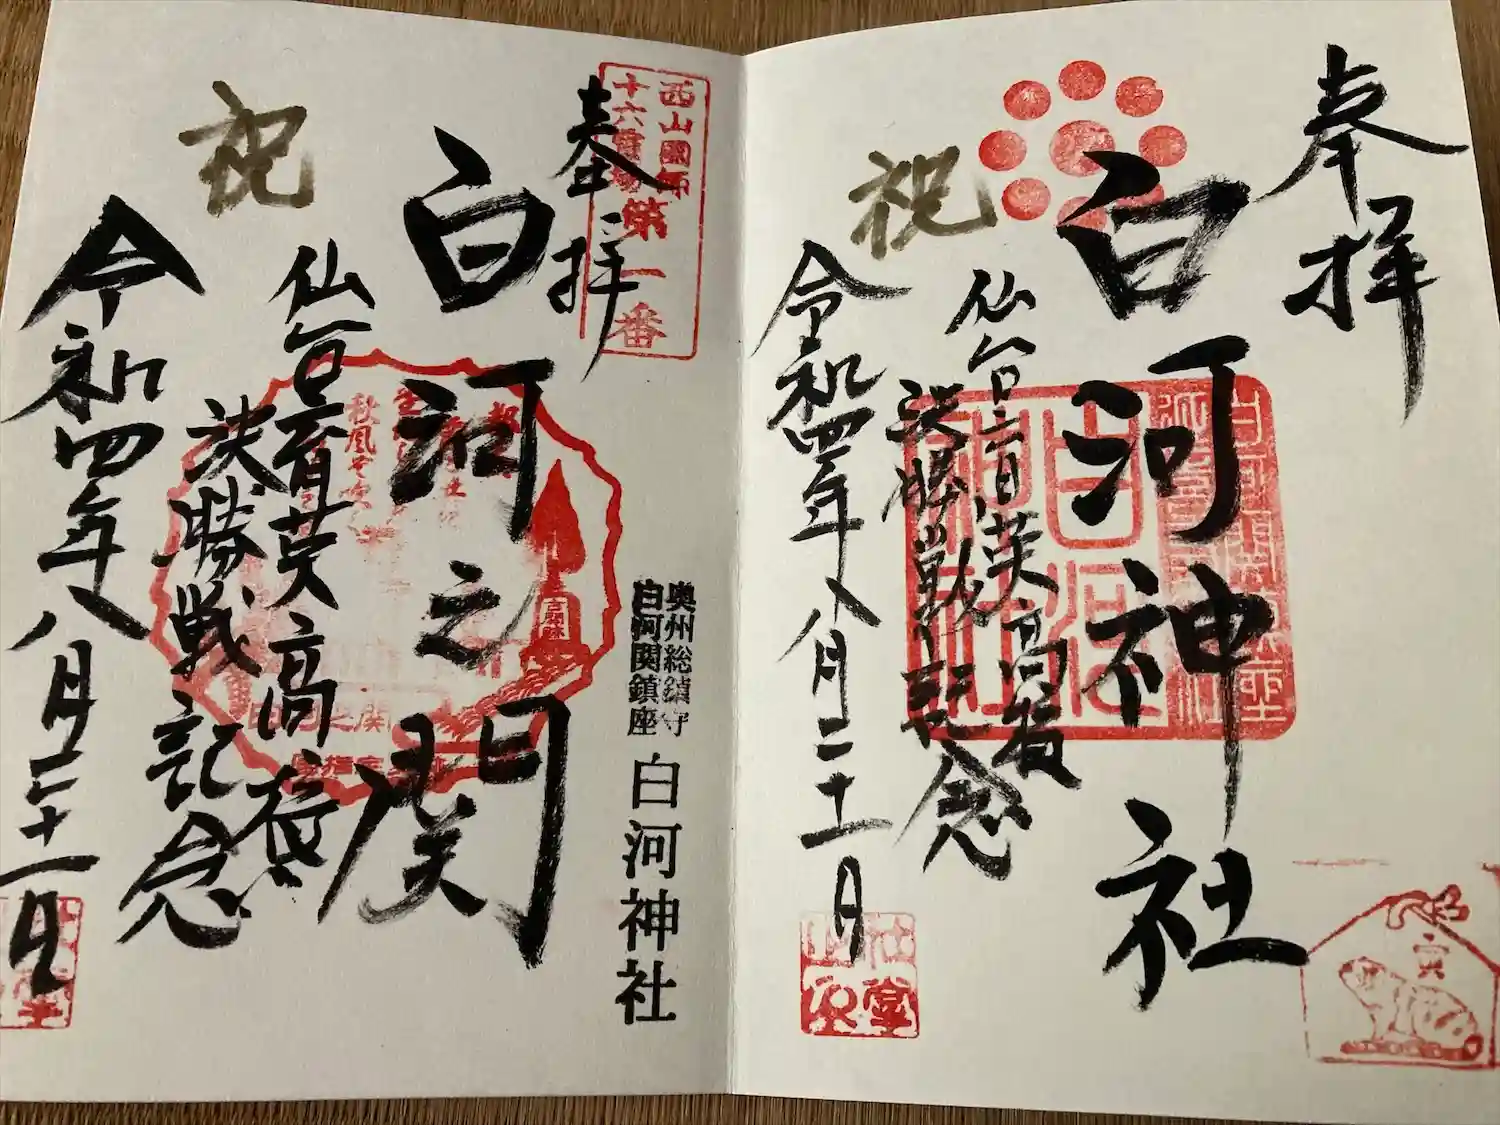 奉拝
白河神社
祝
仙台育英高校
決勝戦記念
令和四年八月二十一日
寅
奉拝
西山國師
十六霊場第一番
白河之関
奥州総鎮守
白河関鎮座
白河神社
祝
仙台育英高校
決勝戦記念
令和四年八月二十一日